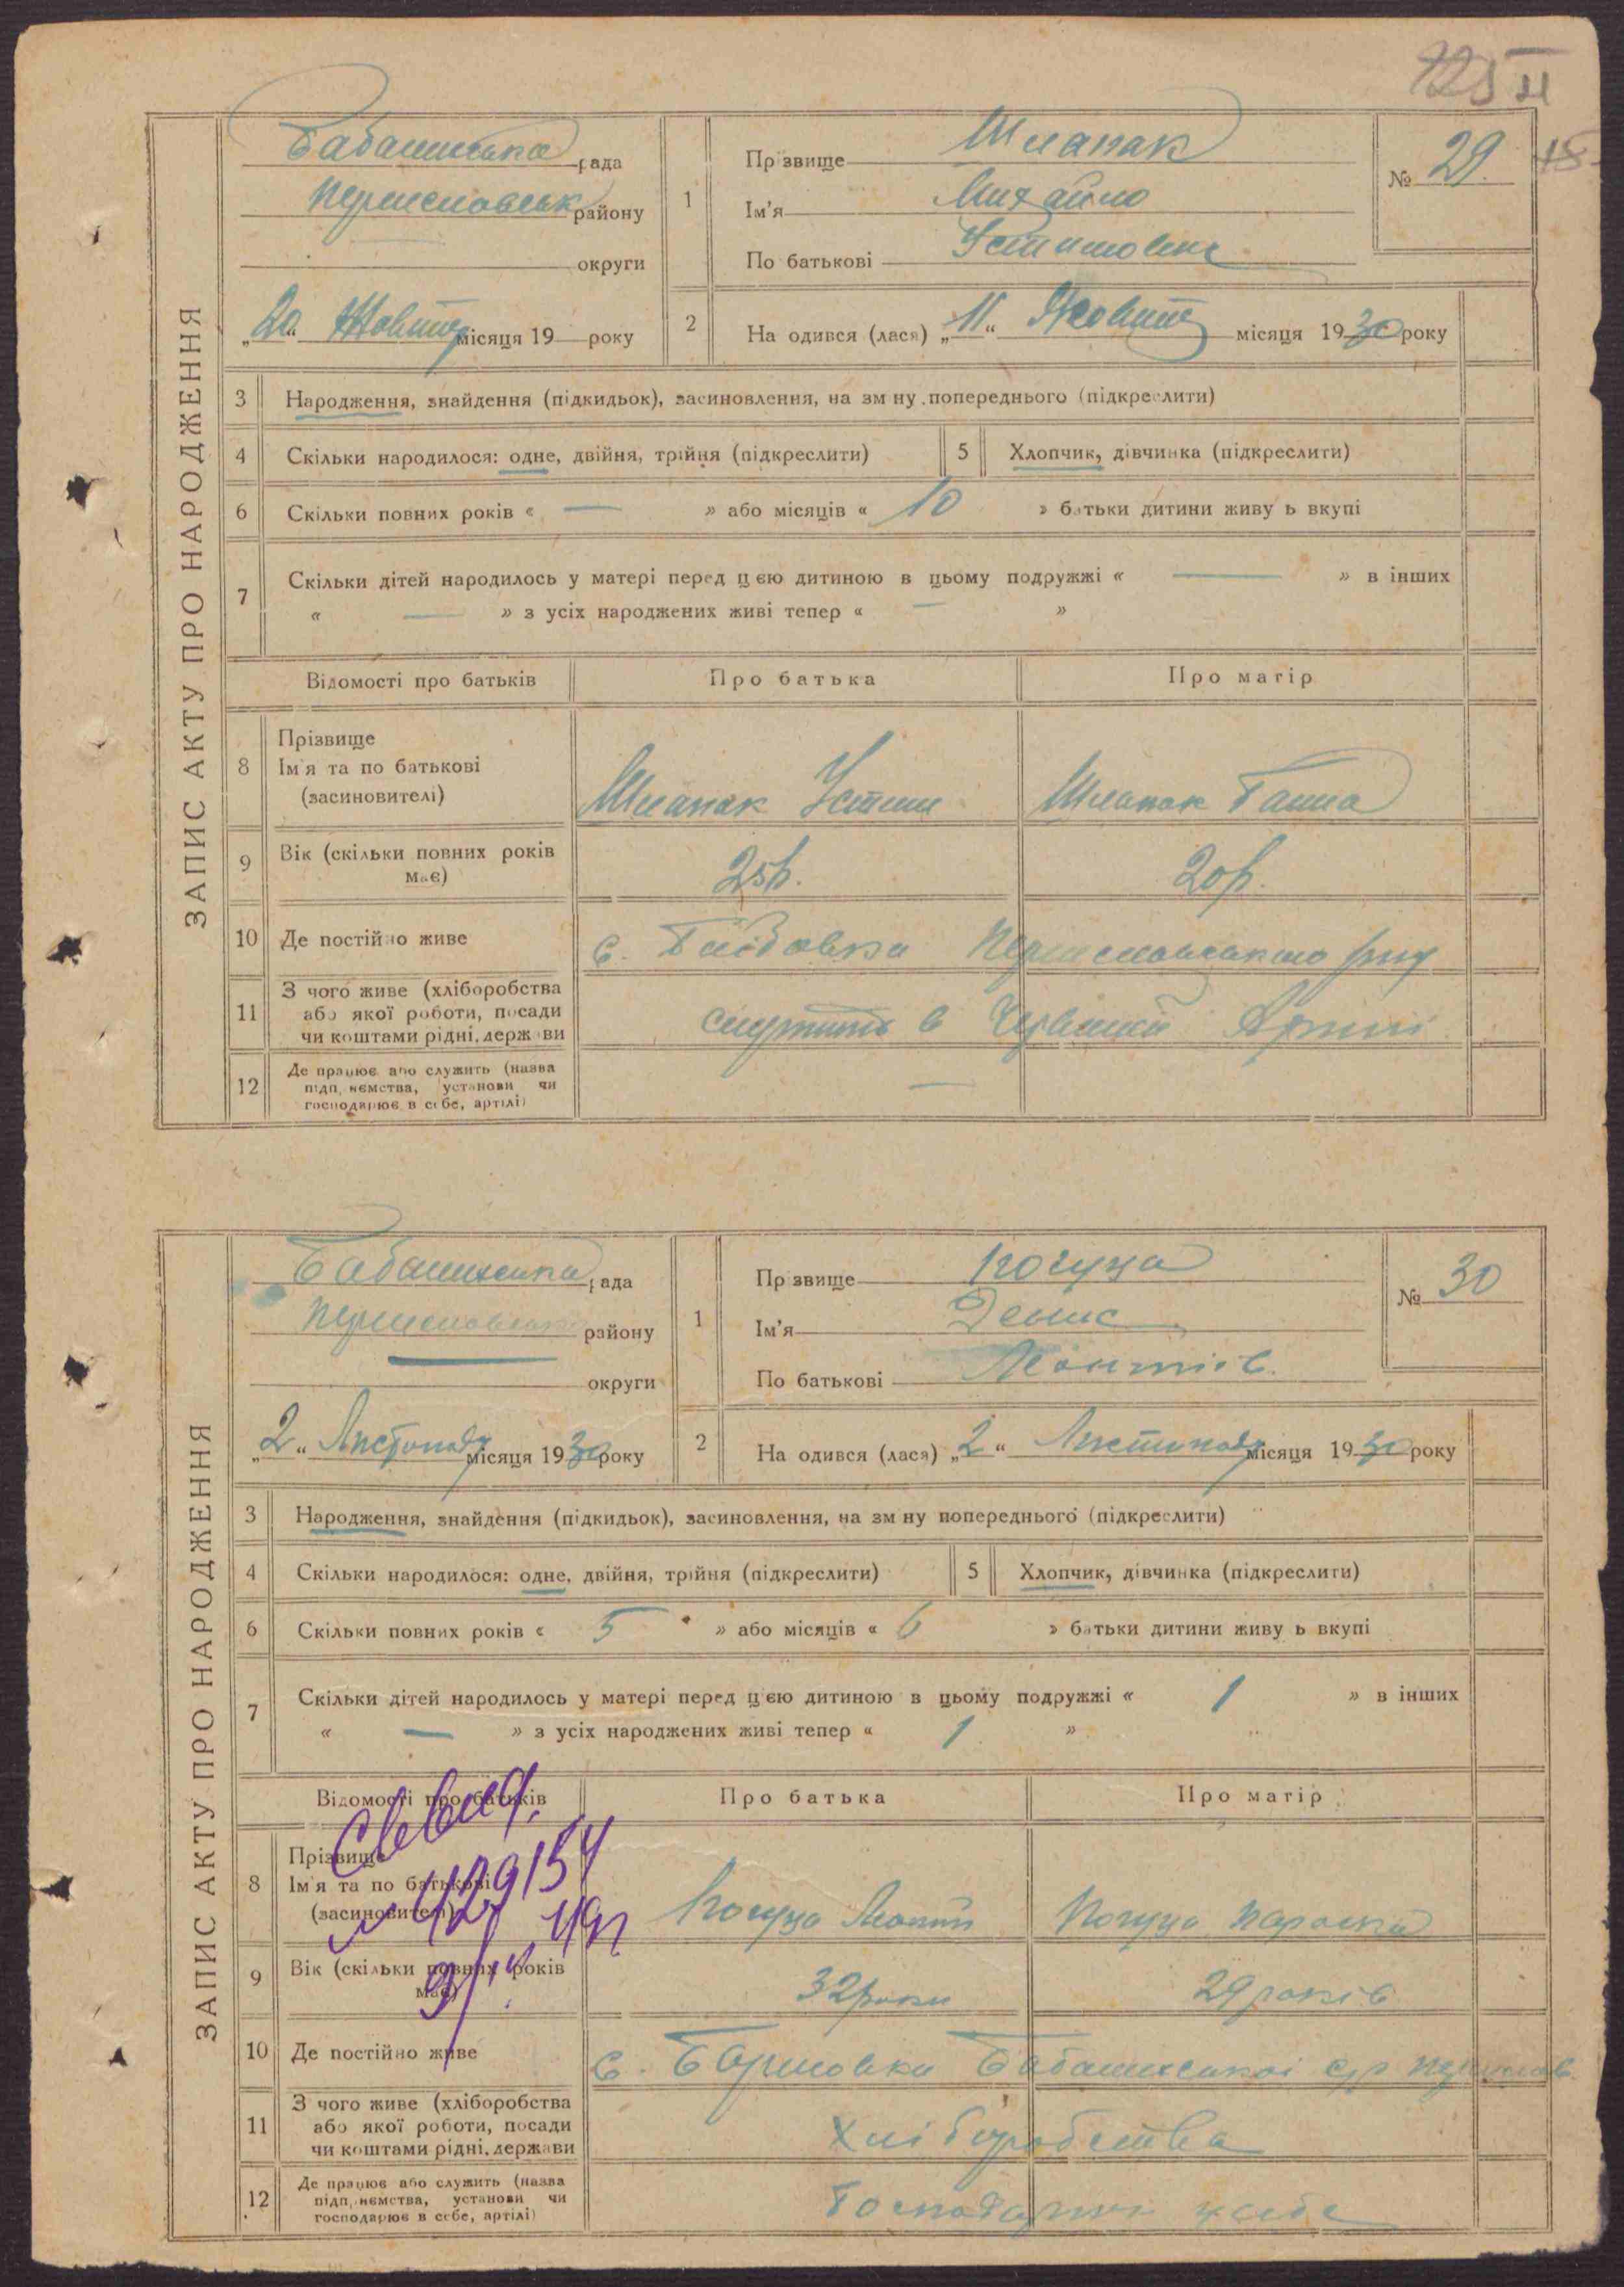 ЗАПИС АКТУ ПРО НАРОДЖЕННЯ
рада
району
округи
„20“ Жовтня місяця 19 року
1
Пр звище Шлапак
Ім'я Михайло
По батькові Устимович
№ 29
2
На одився (лася) „11“ Жовтня місяця 1930 року
3
Народження, знайдення (підкидьок), засиновлення, на зм ну попереднього (підкреслити)
4
Скільки народилося: одне, двійня, трійня (підкреслити)
5
Хлопчик, дівчинка (підкреслити)
6
Скільки повних років « — » або місяців « 10 » батьки дитини живу ь вкупі
7
Скільки дітей народилось у матері перед цею дитиною в цьому подружжі « — » в інших
« — » з усіх народжених живі тепер « — »
Відомості про батьків
Про батька
Про матір
8
Прізвище
Ім'я та по батькові
(засиновителі)
Шлапак Устим
Шлапак Ганна
9
Вік (скільки повних років
має)
25 р.
20 р.
10
Де постійно живе
с.
11
З чого живе (хліборобства
або якої роботи, посади
чи коштами рідні, держави
служить в Червоній Армії
12
Де працює або служить (назва
підп иємства, установи чи
господарює в себе, артілі)
—
ЗАПИС АКТУ ПРО НАРОДЖЕННЯ
рада
району
округи
„2“ Листопада місяця 1930 року
1
Пр звище
Ім'я Денис
По батькові Леонтіів.
№ 30
2
На одився (лася) „2“ Листопада місяця 1930 року
3
Народження, знайдення (підкидьок), засиновлення, на зм ну попереднього (підкреслити)
4
Скільки народилося: одне, двійня, трійня (підкреслити)
5
Хлопчик, дівчинка (підкреслити)
6
Скільки повних років « 5 » або місяців « 6 » батьки дитини живу ь вкупі
7
Скільки дітей народилось у матері перед цею дитиною в цьому подружжі « 1 » в інших
« — » з усіх народжених живі тепер « 1 »
Відомості про батьків
Про батька
Про матір
8
Прізвище
Ім'я та по батькові
(засиновителі)
Параска
9
Вік (скільки повних років
має)
32 роки
29 років
10
Де постійно живе
с.
11
З чого живе (хліборобства
або якої роботи, посади
чи коштами рідні, держави
Хліборобства
12
Де працює або служить (назва
підп иємства, установи чи
господарює в себе, артілі)